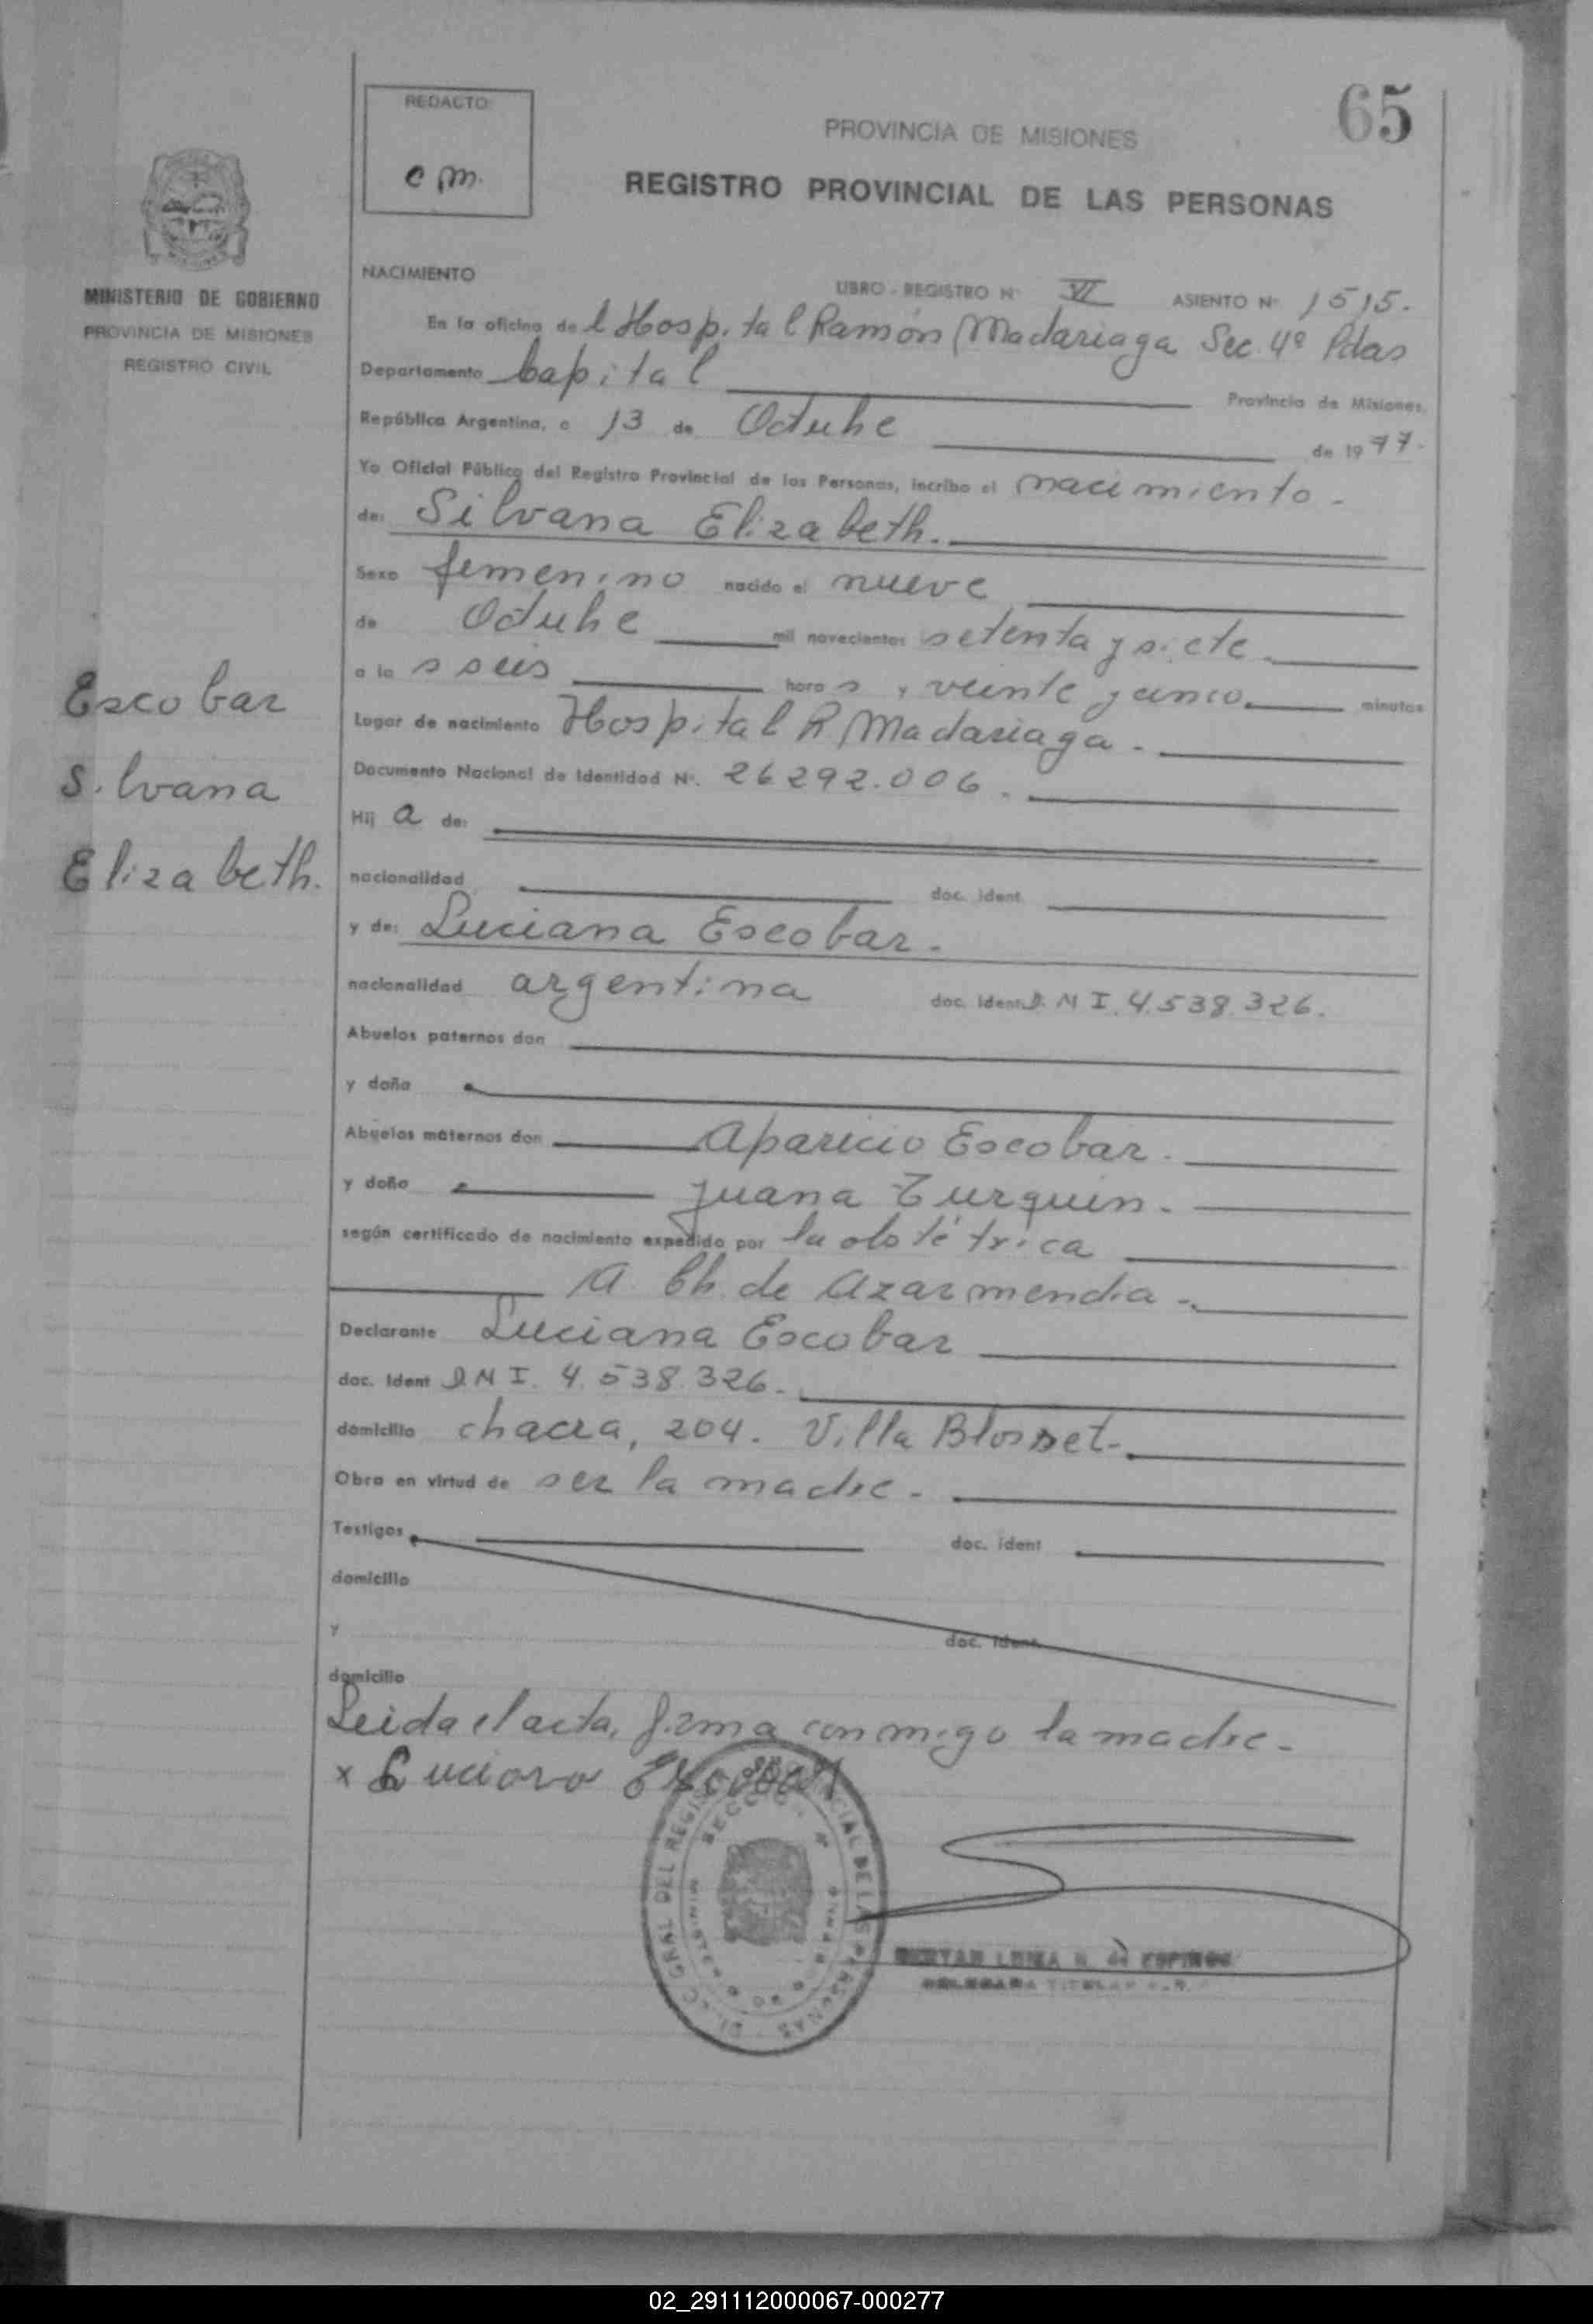 65
REDACTO:
em.
PROVINCIA DE MISIONES
REGISTRO PROVINCIAL DE LAS PERSONAS
MINISTERIO DE GOBIERNO
PROVINCIA DE MISIONES
REGISTRO CIVIL
NACIMIENTO
LIBRO - REGISTRO Nº VI ASIENTO Nº 1515.
En la oficina del Hospital Ramón Madariaga Sec. 4º Pdas
Departamento Capital Provincia de Misiones,
República Argentina, a 13 de Octubre de 1977.
Yo Oficial Público del Registro Provincial de las Personas, incribo el nacimiento.
de: Silvana Elizabeth.
Sexo femenino nacido el nueve
de Octubre mil novecientos setenta y siete
a las seis horas y veinte y cinco minutos
Lugar de nacimiento Hospital R Madariaga.
Documento Nacional de Identidad Nº. 26292.006.
Hija de:
nacionalidad doc. ident.
y de: Luciana Escobar.
nacionalidad argentina doc. ident. D.N I. 4.538.326.
Abuelos paternos don
y doña
Abuelos maternos don Aparicio Escobar.
y doña Juana Turquin.
según certificado de nacimiento expedido por la obstétrica
A. Ch. de Azarmendia.
Declarante Luciana Escobar
doc. Ident D N I. 4.538.326.
domicilio chacra, 204. Villa Blosset.
Obra en virtud de ser la madre.
Testigos doc. ident
domicilio
y doc. ident.
domicilio
Leida el acta, firma conmigo la madre.
x Luciana Escobar
Escobar
Silvana
Elizabeth.
GRAL DEL REGISTRO PROVINCIAL DE LAS PERSONAS
SECCION
MINISTERIO
02_291112000067-000277